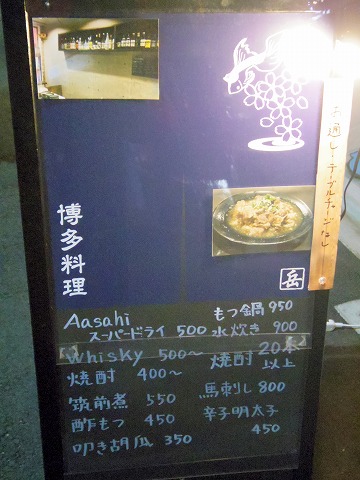 お通し・テーブルチャージなし
博多料理
岳
Aasahi
スーパードライ 500
もつ鍋 950
水炊き 900
Whisky 500〜
焼酎 20本以上
焼酎 400〜
筑前煮 550
馬刺し 800
酢もつ 450
辛子明太子 450
叩き胡瓜 350